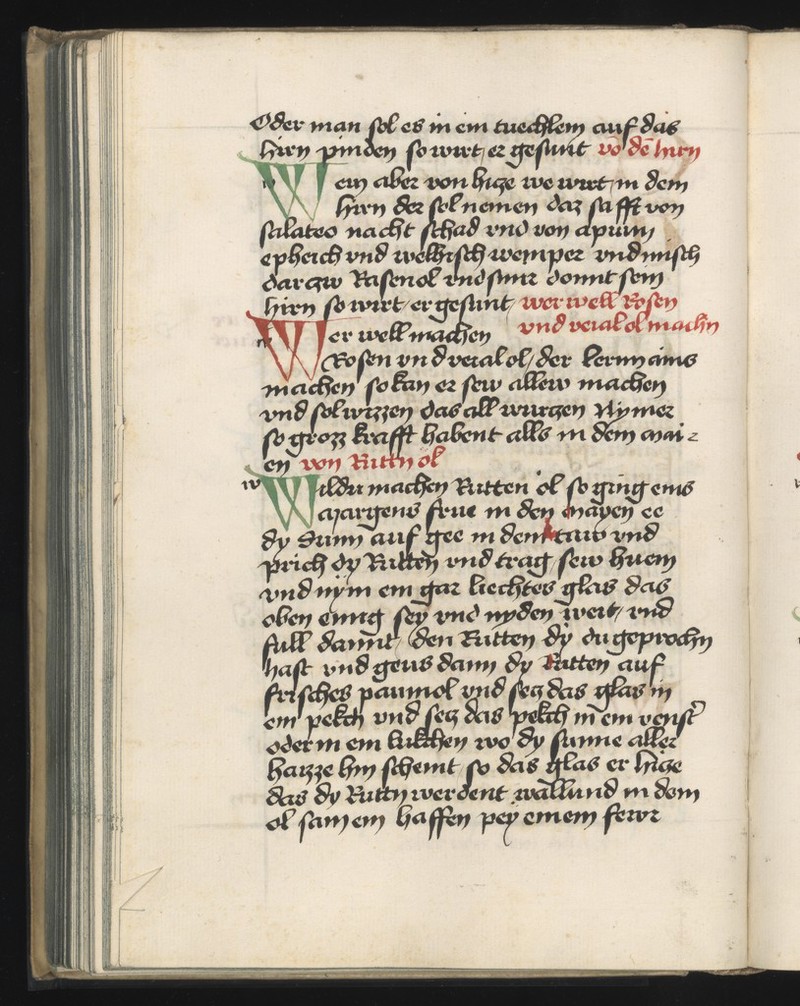 Oder man sol es in ein tuechlein auf das
hirn pinden so wirt er gesunt vō dē hirn
Wem aber von hicze we wirt in dem
hirn der sol nemen daz safft von
salateo nacht schad vnd von apium
epheich vnd welhisch wemper vnd misch
dar czw Rasenol vnd smir domit sein
hirn so wirt er gesunt wer well Rosen
vnd veial ol machn
Wer well machen
Rosen vnd veial ol der lernn ains
machen so kan er sew allew machen
vnd sol wizzen das all wurczen Nymer
so grozz krafft habent alls in dem mai
en von Rittn ol
Wildu machen Rutten ol so ging eins
margens frue in den mayen ee
dy Sunn auf gee in dem taw vnd
prich dy Rutten vnd trag sew huem
vnd nym ein gar liechtes glas das
oben enng sey vnd nyden weit vnd
full damit den Rutten dy du geprochn
hast vnd geus dann dy Rutten auf
frisches paumol vnd secz das glas in
ein pekch vnd secz das pekch in ein venst̄
oder in ein lukchen wo dy sunne aller
haizze hin scheint so das glas er hicze
das dy Ruttn werdent wallund in dem
ol sam ein haffen pey einem fewr